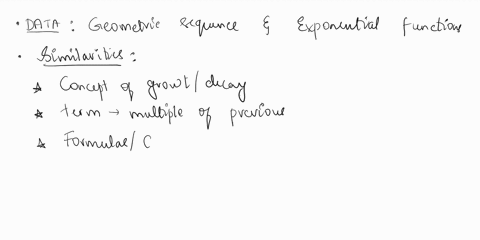 • DATA : Geometric sequence & Exponential functions
• Similarities :
☆ Concept of growth/decay
☆ term → multiple of previous
☆ Formulae/ C